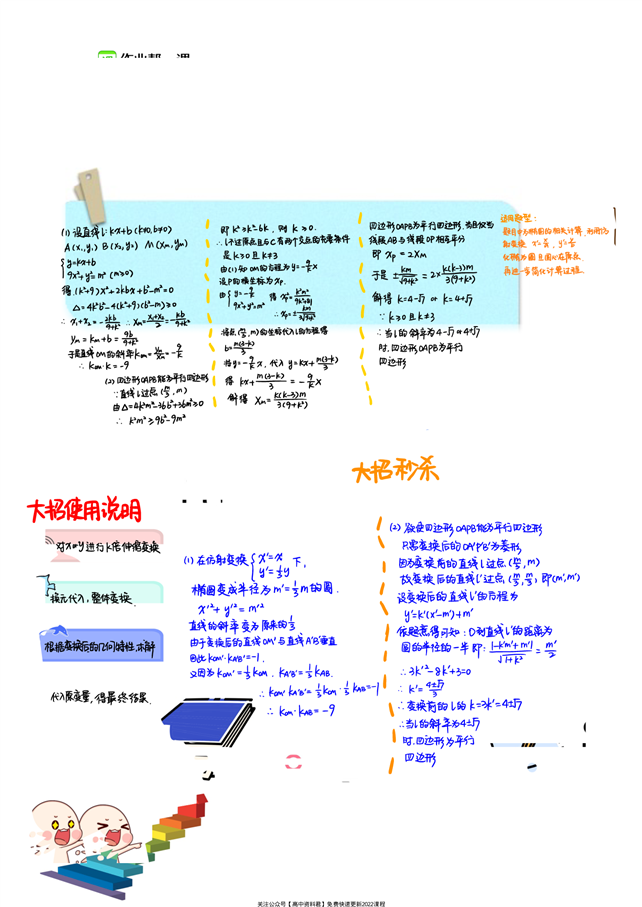 (1) 设直线 l: kx+b (k≠0, b≠0)
A(x₁,y₁) B(x₂,y₂) M(xₘ,yₘ)
{y=kx+b
9x²+y²=m² (m>0)
得 (k²+9)x²+2kbx+b²-m²=0
∴ x₁+x₂=-2kb/(9+k²) ∴ xₘ=(x₁+x₂)/2=-kb/(9+k²)
yₘ=kxₘ+b=9b/(9+k²)
于是直线OM的斜率kₒₘ=yₘ/xₘ=-9/k
∴ kₒₘ·k=-9
(2) 四边形OAPB能为平行四边形
∵直线l过点(m/3, m)
∴ k²m²≥9b²-9m²
即 k²>3k²-6k, 则 k≥0.
∴ l不过原点且与C有两个交点的充要条件
是k≥0且k≠3
由(1)知OM的方程为y=-9/k x
设P的横坐标为xₚ.
将点(m/3, m)的坐标代入l的方程得
b=m(3-k)/3
将y=-9/k x, 代入 y=kx+m(3-k)/3
得 kx+m(3-k)/3=-9/k x
解得 xₘ=k(k-3)m/3(9+k²)
四边形OAPB为平行四边形,当且仅当
线段AB与线段OP相互平分
即 xₚ=2xₘ
于是 ±km/3√(9+k²)=2×k(k-3)m/3(9+k²)
解得 k=4-√7 or k=4+√7
∵ k≥0且k≠3
∴当l的斜率为4-√7 or 4+√7
时,四边形OAPB为平行
四边形
适用题型:
化椭为圆且圆心在原点
再进一步简化计算过程.
大招秒杀
大招使用说明
对x或y进行k倍伸缩变换
换元代入,整体变换
根据变换后的几何特性求解
代入原变量,得最终结果.
(1) 在仿射变换{x'=x
y'=1/3y 下,
椭圆变成半径为m'=1/3m的圆.
x'²+y'²=m'²
直线的斜率变为原来的1/3
由于变换后的直线OM'与直线A'B'垂直
因此kₒₘ'·kA'B'=-1.
又因为kₒₘ'=1/3kₒₘ, kA'B'=1/3kAB.
∴ kₒₘ'·kA'B'=1/3kₒₘ·1/3kAB=-1
∴ kₒₘ·kAB=-9
(2) 欲使四边形OAPB能为平行四边形
只需变换后的OA'P'B'为菱形
因为变换前的直线l过点(m/3, m)
故变换后的直线l'过点(m/3, m/3), 即(m', m')
设变换后的直线l'的方程为
y'=k'(x'-m')+m'
依题意得可知: O到直线l'的距离为
圆的半径的一半即: |-k'm'+m'|/√(1+k'²)=m'/2
∴ 3k'²-8k'+3=0
∴ k'=(4±√7)/3
∴变换前的l的k=3k'=4±√7
∴当l的斜率为4±√7
时,四边形为平行
四边形
关注公众号【高中资料君】免费快速更新2022课程